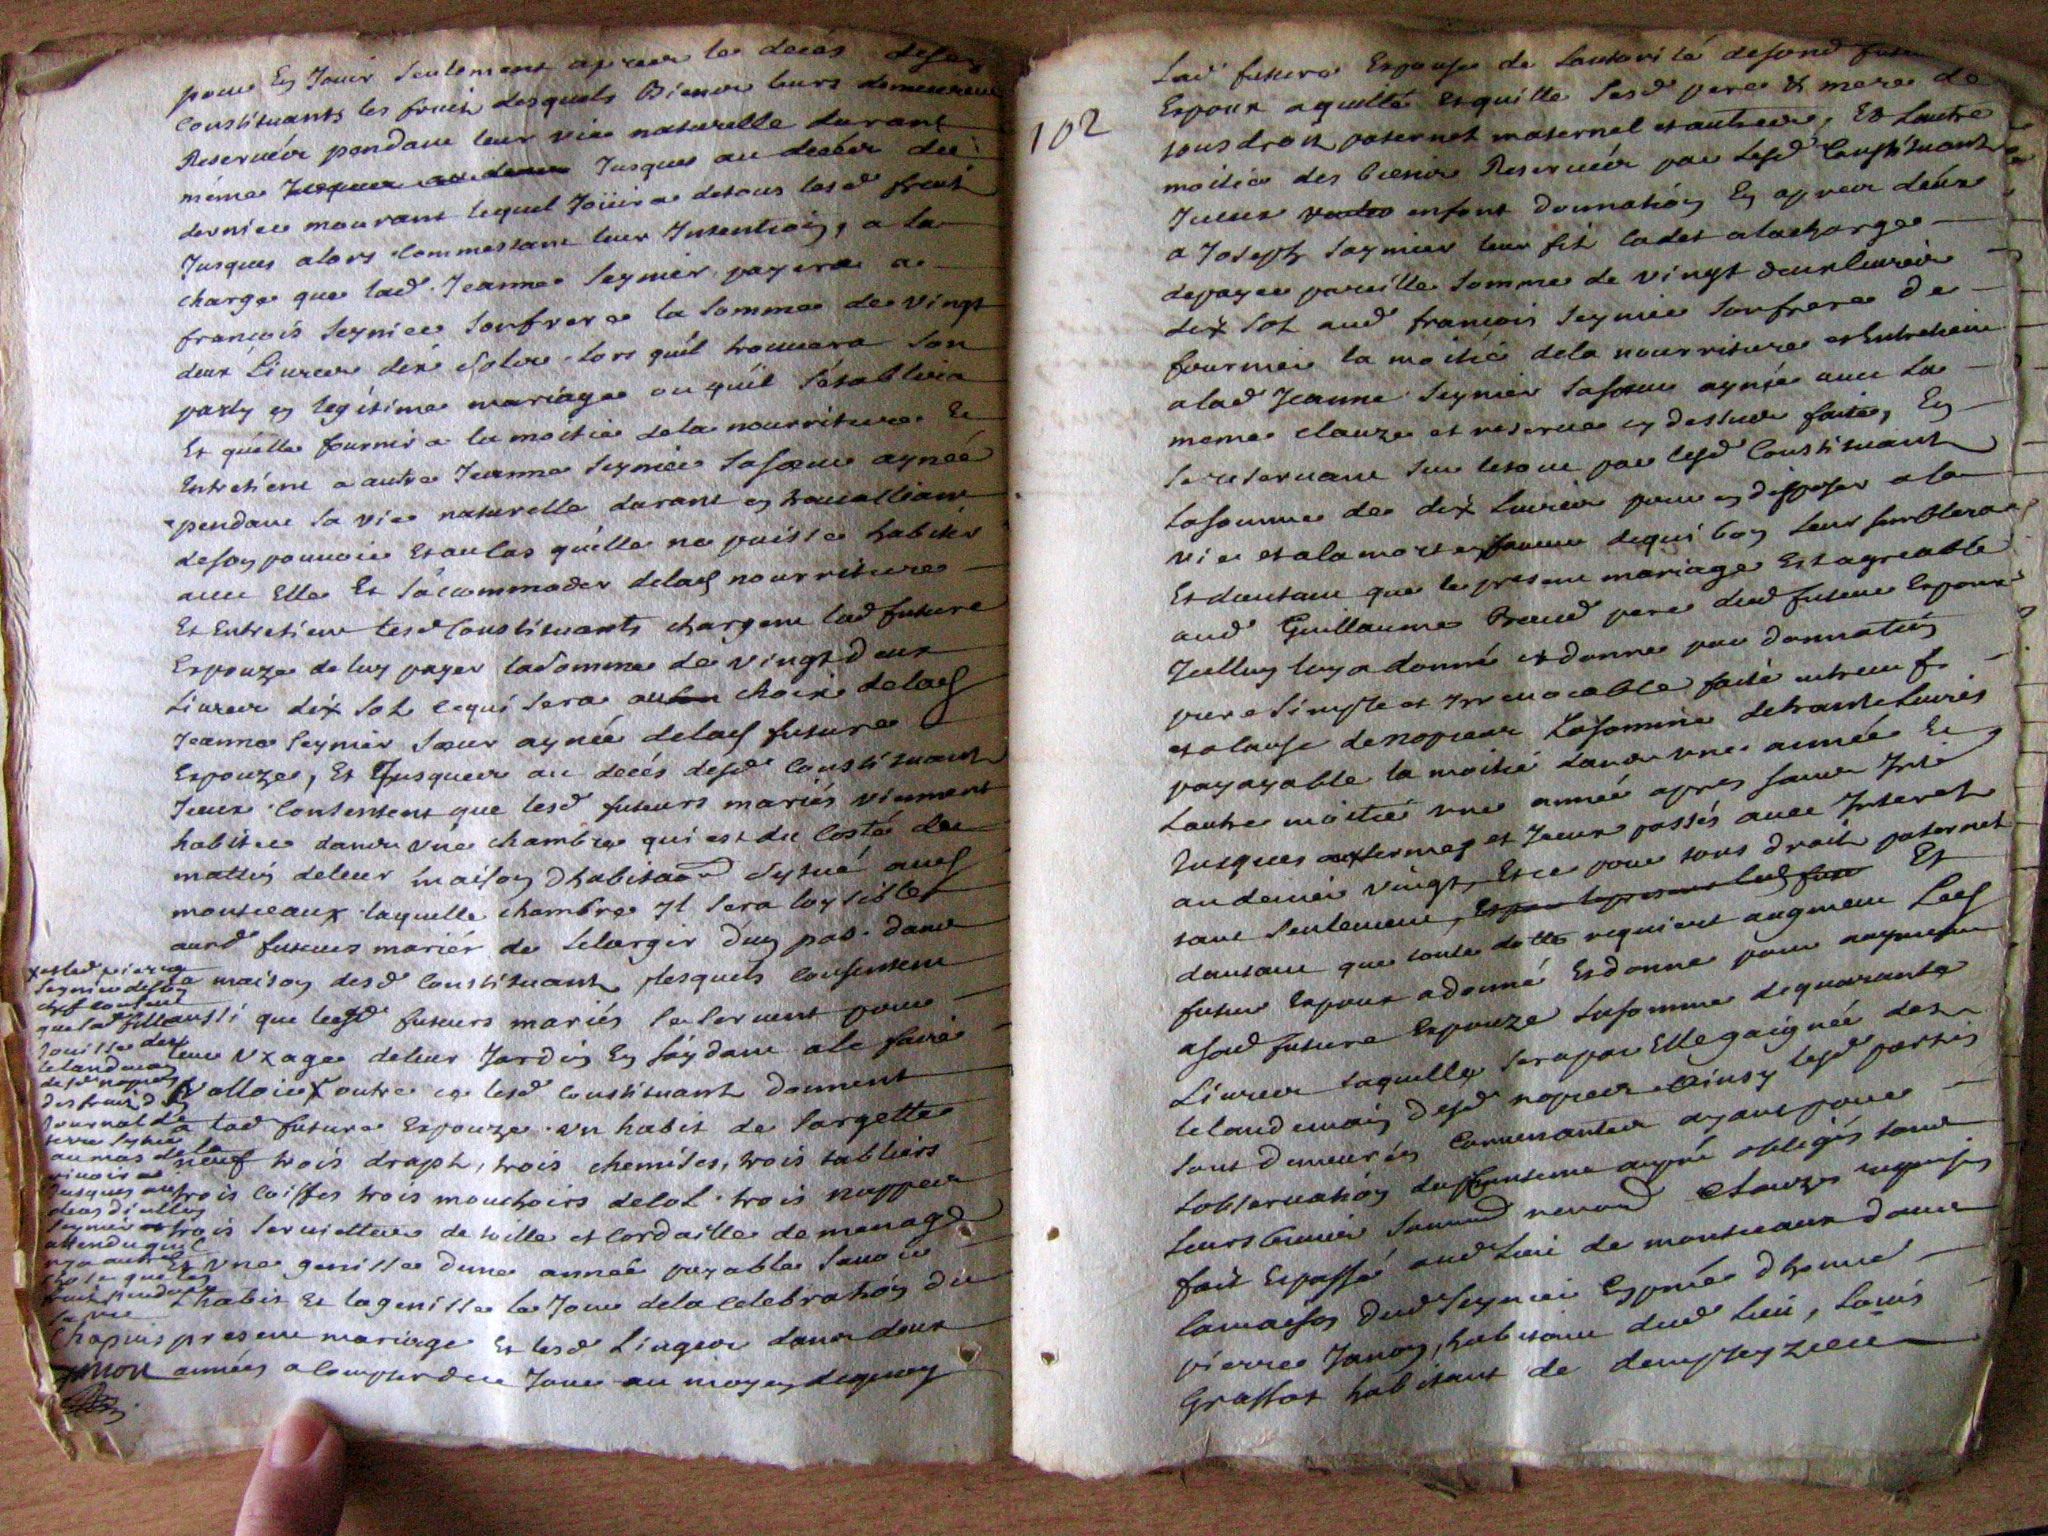 pour En Jouir seulement apres le decés desd
Constituants les fruits desquels Biens leurs demeurent
Reservés pendant leur vie naturelle durant
méme Jusques au deces du
dernier mourant lequel Joüira de tous lesd fruits
Jusques alors Commessant leur Intention, a la
charge que lad Jeanne Seynier payera a
francois Seynier son frere la somme de vingt
deux Livres dix Solz lors quil trouuera son
party en legitime mariage ou quil s'établira
Et quélle fournira la moitié de la nourriture Et
Entretient a autre Jeanne Seynier sa soeur aynée
pendant sa vie naturelle durant en trauailliant
de son pouuoir Et au cas quélle ne puisse habiter
auec Elle Et s'acommoder delad nourriture
Et Entretient lesd Constituants chargent lad future
Espouze de luy payer la Somme de vingt deux
Liures dix Solz ce qui sera au choix de lad
Jeanne Seynier Soeur aynée delad future
Espouze, Et Jusques au decés desd Constituant
Iceux Consentent que lesd futurs mariés viennent
habiter dans vne chambre qui est du Costé du
mattin de leur maison dhabitaon Sytué aud
monteaux laquelle chambre Jl sera loysible
ausd futeurs mariér de selargir d'un pas dans
la maison desd Constituant, lesquels Consentent
aussi que lesd futurs mariés se seruent pour
leur vzage de leur Jardin En s'aydant a le faire
Valloir X outre ce lesd Constituant donnent
a lad future Espouze vn habit de Sargette
neuf trois draph, trois chemises, trois tabliers
trois Coiffes trois mouchoirs de col trois nappes
trois Seruiettes de toille et Cordaille de menage
Et vne genisse dune année payable Sauoir
L'habit Et la genisse le Jour de la Celebration du
present mariage Et lesd Linges dans deux
années a Compter de ce Jour au moyen dequoy
X et led pierre
Seynier de son
chef consent
que lad fille
Jouisse dez
le landemain
desd nopces
des fruits d'un
Journal de
terre Sytué
au mas de la
Jusques au
deces d'icelluy
Seynier
attendu quil
n'y a autre
chose que les
fruits pendant
sa vie
Chapuis
102
Lad future Espouse de Lautorité desond futur
Espoux a quitté Et quitte Sesd pere & mere de
tous droits paternel maternel et autres, Et Lautre
moitié des biens Reseruées par Lesd Constituant
Jceux en font donnation En apres déux
a Joseph Seynier leur fils cadet a la charge
de payer pareille Somme de vingt deux Liures
dix Solz aud francois Seynier Son frere de
fournir la moitié de la nourriture et Entretient
a lad Jeanne Seynier Sa soeur aynée auec la
meme clauze et reserue cy dessus faite, En
se reseruant sur le tout par lesd Constituant
La Somme de dix Liures pour en disposer a la
vie et a la mort en faueur de qui bon leur semblera
Et dautant que le present mariage Est agreable
aud Guillaume pere dud futeur Espoux
Jcelluy luy a donné et donne par donnation
pure Simple et Irreuocable faite entreuifs
et a cause de nopces La Somme de trante Liures
payayable la moitié dans vne année Et
Lautre moitié vne année apres sans Inté
Jusques aux termes et Jceux passés auec Interest
au denier vingt, Et ce pour tous droits paternel
tant Seulement, Et
dautant que toute dotte requiert augment Led
futur Espoux a donné Et donne pour augment
a sad future Espouze La Somme de quarante
Liures laquelle sera par Elle gaignée dez
le landemain desd nopces Ainsy lesd parties
sont demeurés Conuenantes ayant pour
Lobseruation du Contenu obligés tous
Leurs biens renond Clauzes requises
fait Et passé aud Lieu de monteaux dans
la maison dud Seynier En pnce dhonne
pierre Janon, habitant dud lieu, Louis
Grassot habitant de dempseyzieu